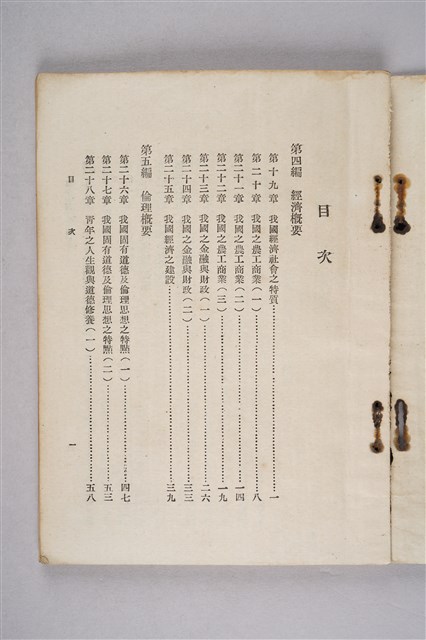 目次
第四編　經濟概要
第十九章　我國經濟社會之特質……一
第二十章　我國之農工商業(一)……八
第二十一章　我國之農工商業(二)……一四
第二十二章　我國之農工商業(三)……一九
第二十三章　我國之金融與財政(一)……二六
第二十四章　我國之金融與財政(二)……三三
第二十五章　我國經濟之建設……三九
第五編　倫理概要
第二十六章　我國固有道德及倫理思想之特點(一)……四七
第二十七章　我國固有道德及倫理思想之特點(二)……五三
第二十八章　青年之人生觀與道德修養(一)……五八
目次　一